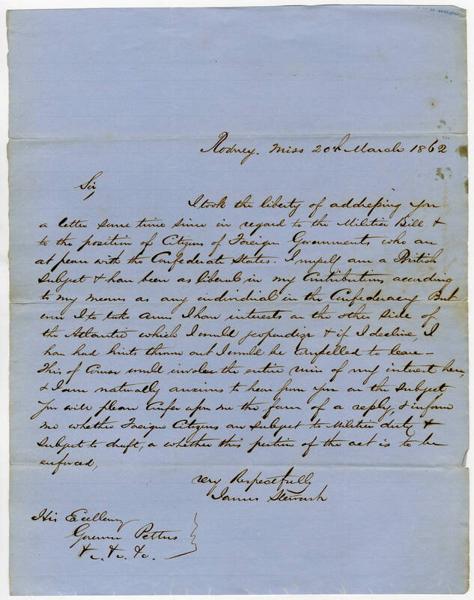 Rodney. Miss 20th March 1862
Sir,
I took the liberty of addressing you
a letter some time since in regard to the Militia Bill &
to the position of Citizens of Foreign Governments who are
at peace with the Confederate States. I myself am a British
Subject & have been as liberal in my Contributions according
to my means as any individual in the Confederacy But
were I to take arms I have interests on the other side of
the Atlantic which I would jeopardize & if I decline, I
have had hints thrown out I would be Compelled to leave –
This of Course would involve the entire ruin of my interest here
& I am naturally anxious to hear from you on the subject
You will please Confer upon me the favor of a reply, & inform
me whether Foreign Citizens are Subject to Militia duty &
Subject to draft, or whether this portion of the act is to be
enforced,
Very Respectfully
James Stewart
His Excellency
Governor Pettus
&c. &c. &c.